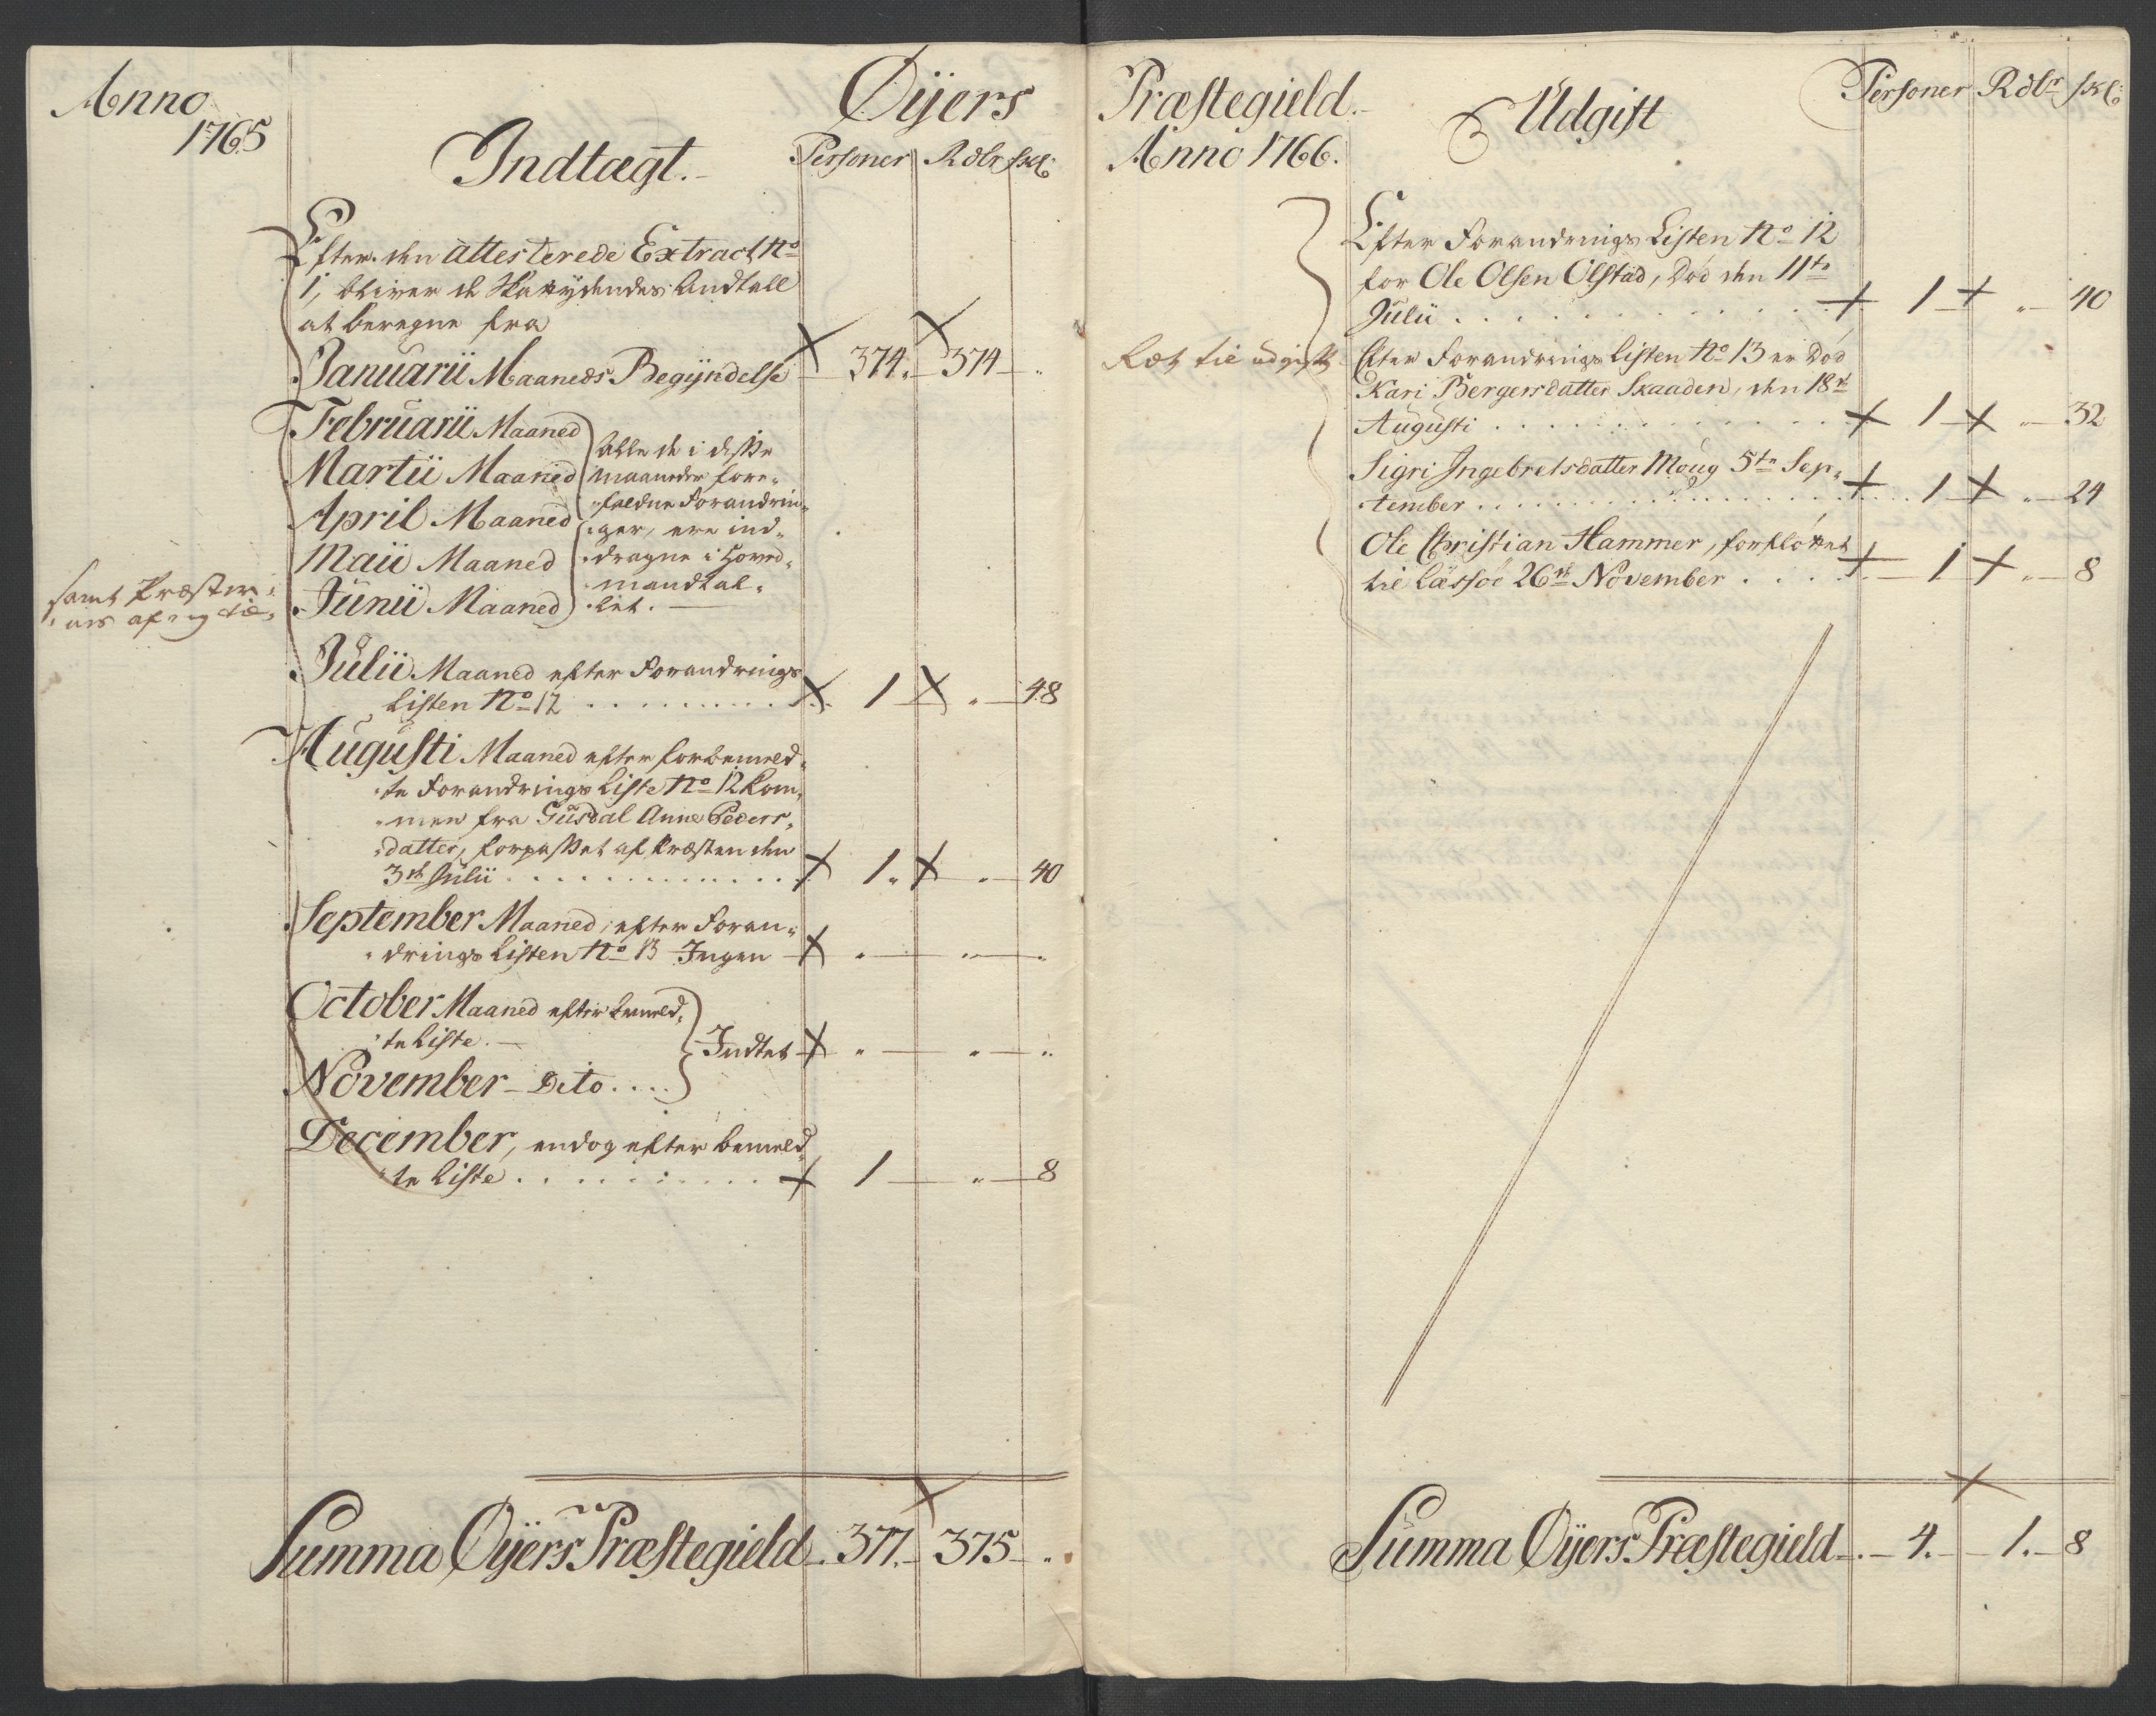 Anno
1765
Øÿers
Indtægt.
Personer Rdlr skl:
Efter den attesterede Extract No
1, bliver de Skattydendes Andtall
at beregne fra
Januarii Maaneds Begÿndelse 374. 374 "
Februarii Maaned
Martii Maaned
April Maaned
Maii Maaned
Junii Maaned
Alle de i disse
maaneder fore-
faldne Forandrin-
ger, ere ind-
dragne i Hoved-
mandtal-
let.
samt Præsten
Julii Maaned efter Forandrings
Listen No 12 . . . . 1 " 48
Augusti Maaned efter forbemeld-
te Forandrings Liste No 12 kom-
men fra Gusdal Anne Peders-
datter, forpasset af Præsten den
3de Julii . . . . 1 " 40
September Maaned, efter Foran-
drings Listen No 13 Ingen " " "
October Maaned efter bemeld-
te Liste.
Indtet " " "
November Dito . . . .
December, endog efter bemeld-
te Liste . . . . 1 " 8
Summa Øÿers Præstegield 377. 375 "
Præstegield.
Anno 1766.
Udgift
Personer Rdlr skl:
Efter Forandrings Listen No 12
for Ole Olsen Olstad, Død den 11te
Julii . . . . 1 " 40
Ræt til udgift
Efter Forandrings Listen No 13 er Død
Kari Bergersdatter Skaaden, den 18de
Augusti . . . . 1 " 32
Sigri Ingebretsdatter Moug 5te Sep-
tember . . . . 1 " 24
Ole Christian Hammer, forfløttet
til Læssøe 26de November . . . . 1 " 8
Summa Øÿers Præstegield 4. 1. 8